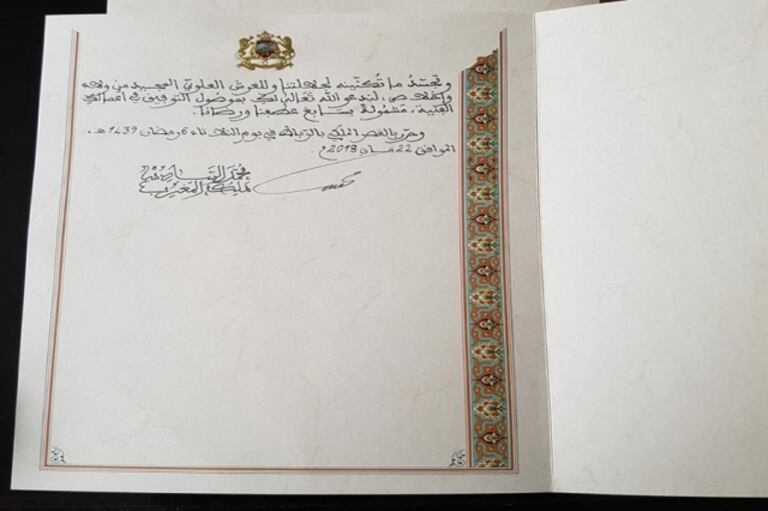 وتجسد ما تكنينه لجلالتنا وللعرش العلوي المجيد من ولاء
وإخلاص، لندعو الله تعالى لك بموصول التوفيق في أعمالك
الفنية، مشمولة بسابغ عطفنا ورضانا.
وحرر بالقصر الملكي بالرباط في يوم الثلاثاء 6 رمضان 1439 هـ،
الموافق 22 ماي 2018م.
محمد السادس
ملك المغرب